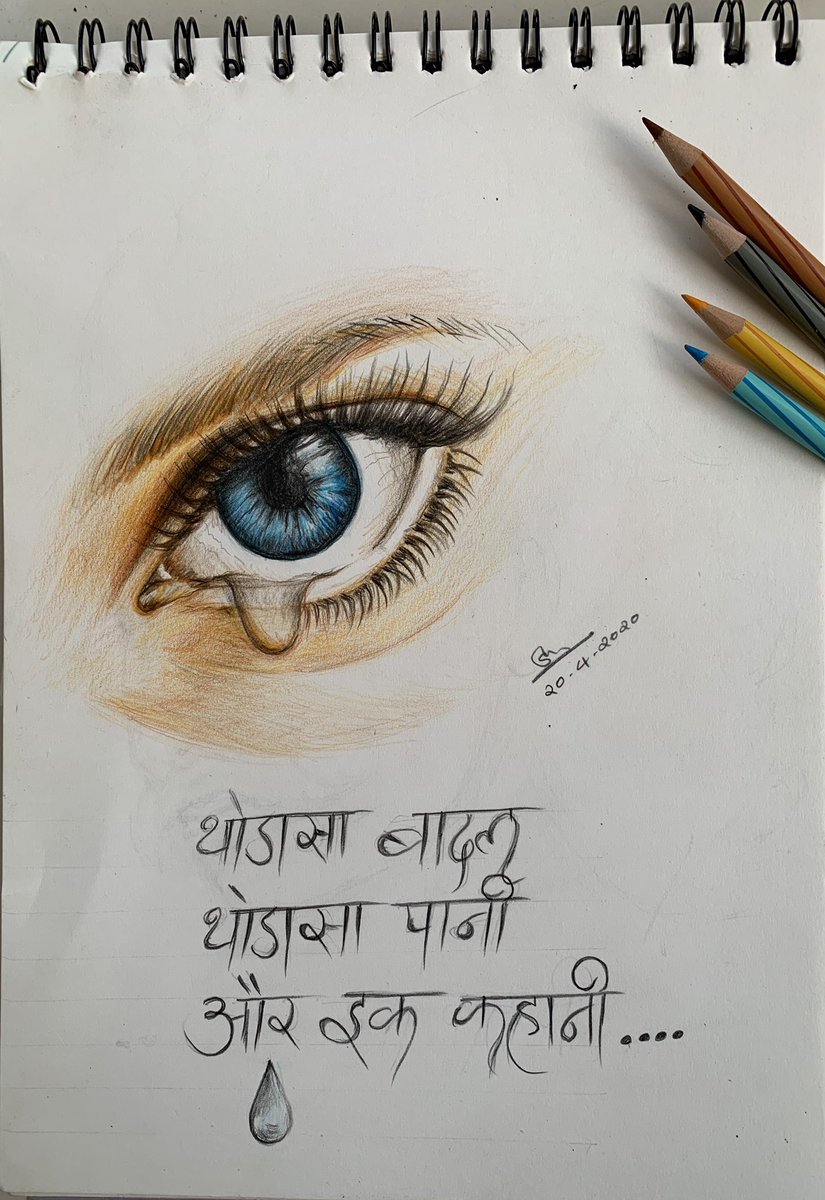 20-4-2020
थोडासा बादल
थोडासा पानी
और इक कहानी....